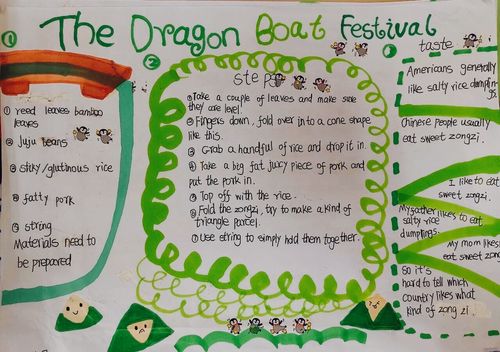 The Dragon Boat Festival
①
① reed leaves bamboo
leaves
② Juju beans
③ stiky/glutinous rice
④ fatty pork
⑤ string
Materials need to
be prepared
②
steps
①Take a couple of leaves and make sure
they are level.
②Fingers down, fold over in to a cone shape
like this.
③ Grab a handful of rice and drop it in.
④ Take a big fat juicy piece of pork and
put the pork in.
⑤ Top off with the rice.
⑥ Fold the zongzi, try to make a kind of
triangle parcel.
⑦ Use string to simply hold them together.
③
taste
Americans generally
like salty rice dumplin-
gs.
Chinese people usually
eat sweet zongzi.
I like to eat
sweet zongzi.
My father likes to eat
salty rice
dumplings.
My mom likes
eat sweet zong
So it's
hard to tell which
country likes what
kind of zong zi.